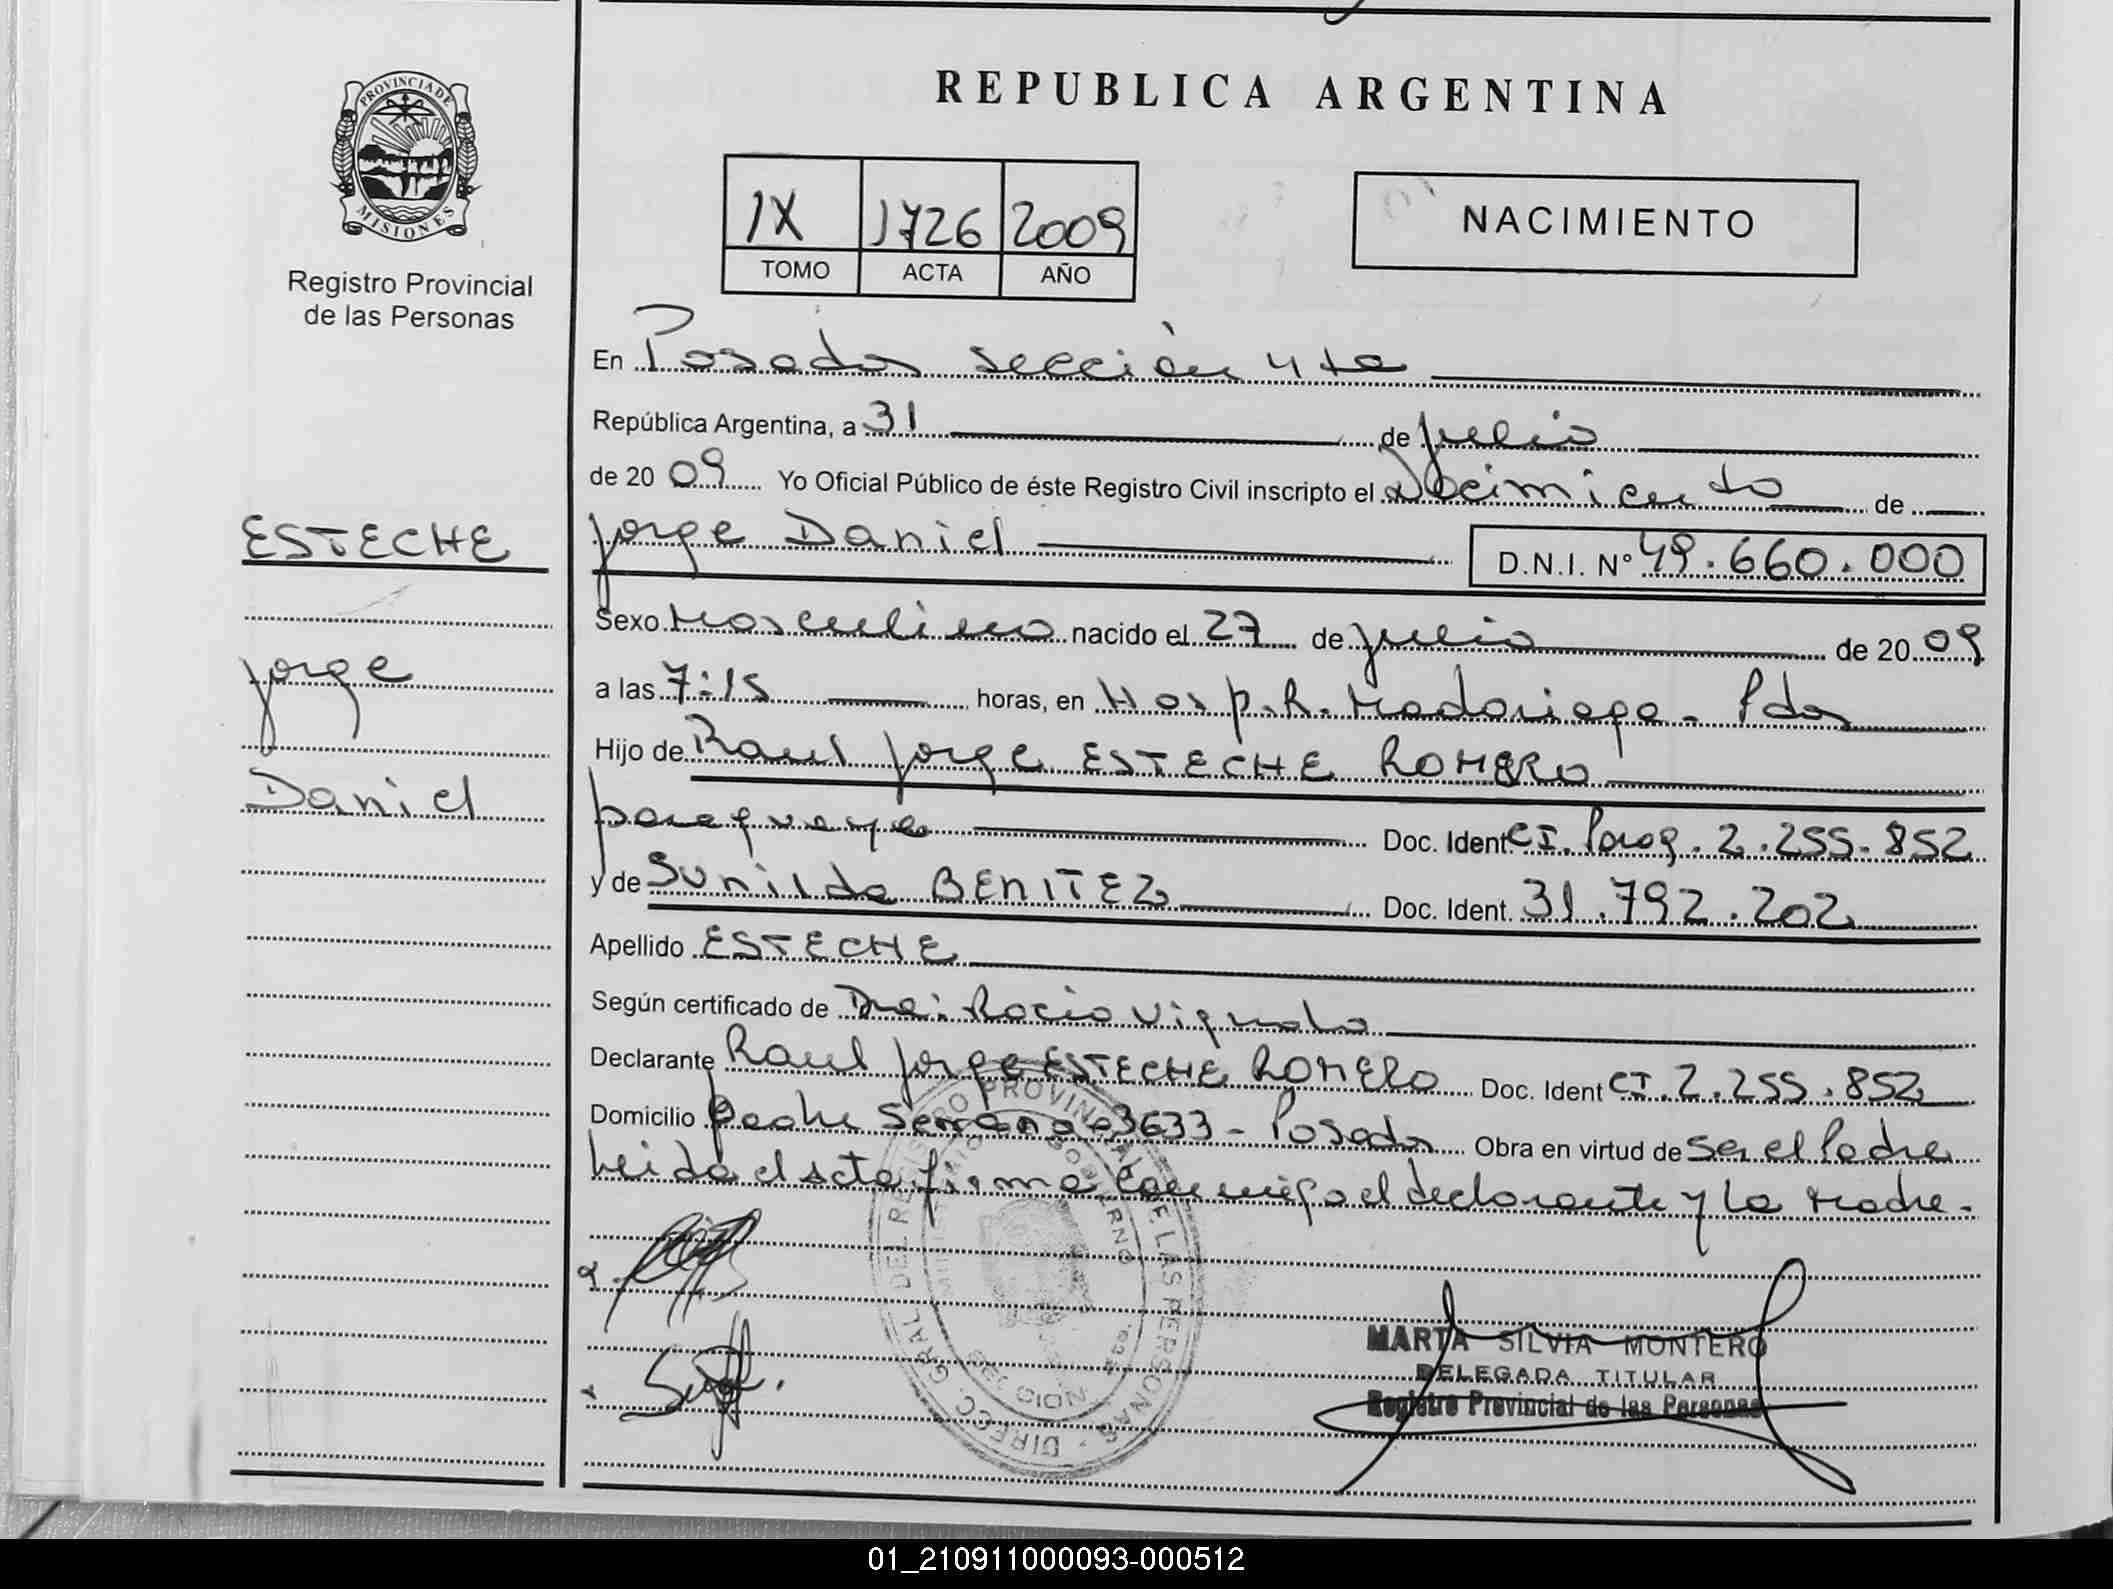 REPUBLICA ARGENTINA
PROVINCIA DE
MISIONES
Registro Provincial
de las Personas
IX 1726 2009
TOMO ACTA AÑO
NACIMIENTO
En Posadas sección 4ta
República Argentina, a 31 de julio
de 2009 Yo Oficial Público de éste Registro Civil inscripto el Nacimiento de
Jorge Daniel D.N.I. Nº 49.660.000
ESTECHE
Jorge
Daniel
Sexo Masculino nacido el 27 de julio de 2009
a las 7:15 horas, en Hosp. R. Madariaga - Pdas
Hijo de Raul Jorge ESTECHE ROMERO
paraguayo Doc. Ident. CI. Parag. 2.255.852
y de Sunilda BENITEZ Doc. Ident. 31.792.202
Apellido ESTECHE
Según certificado de Dra: Rocio Vignolo
Declarante Raul Jorge ESTECHE ROMERO Doc. Ident CI. 2.255.852
Domicilio Padre Serrano 3633 - Posadas Obra en virtud de ser el Padre
Leida el acta firma conmigo el declarante y la madre.
DIRECC. GRAL DEL REGISTRO PROVINCIAL DE LAS PERSONAS
GOBIERNO
MARTA SILVIA MONTERO
DELEGADA TITULAR
Registro Provincial de las Personas
01_210911000093-000512